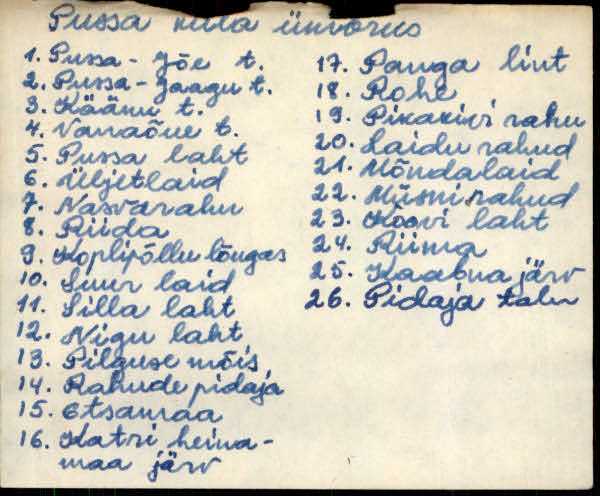 Pussa küla ümbrus
1. Pussa - Jõe t.
2. Pussa - Jaagu t.
3. Käänu t.
4. Vanaõue t.
5. Pussa laht
6. Üljetlaid
7. Nasvarahu
8. Riida
9. Koplipõllu lõugas
10. Suur laid
11. Silla laht
12. Nigu laht
13. Pilguse mõis
14. Rahude pidaja
15. Etsamaa
16. Katri heina-
maa järv
17. Panga lint
18. Rohe
19. Pikakivi rahu
20. Laidu rahud
21. Mõndalaid
22. rahud
23. Koovi laht
24. Riima
25. Kaabna järv
26. Pidaja talu